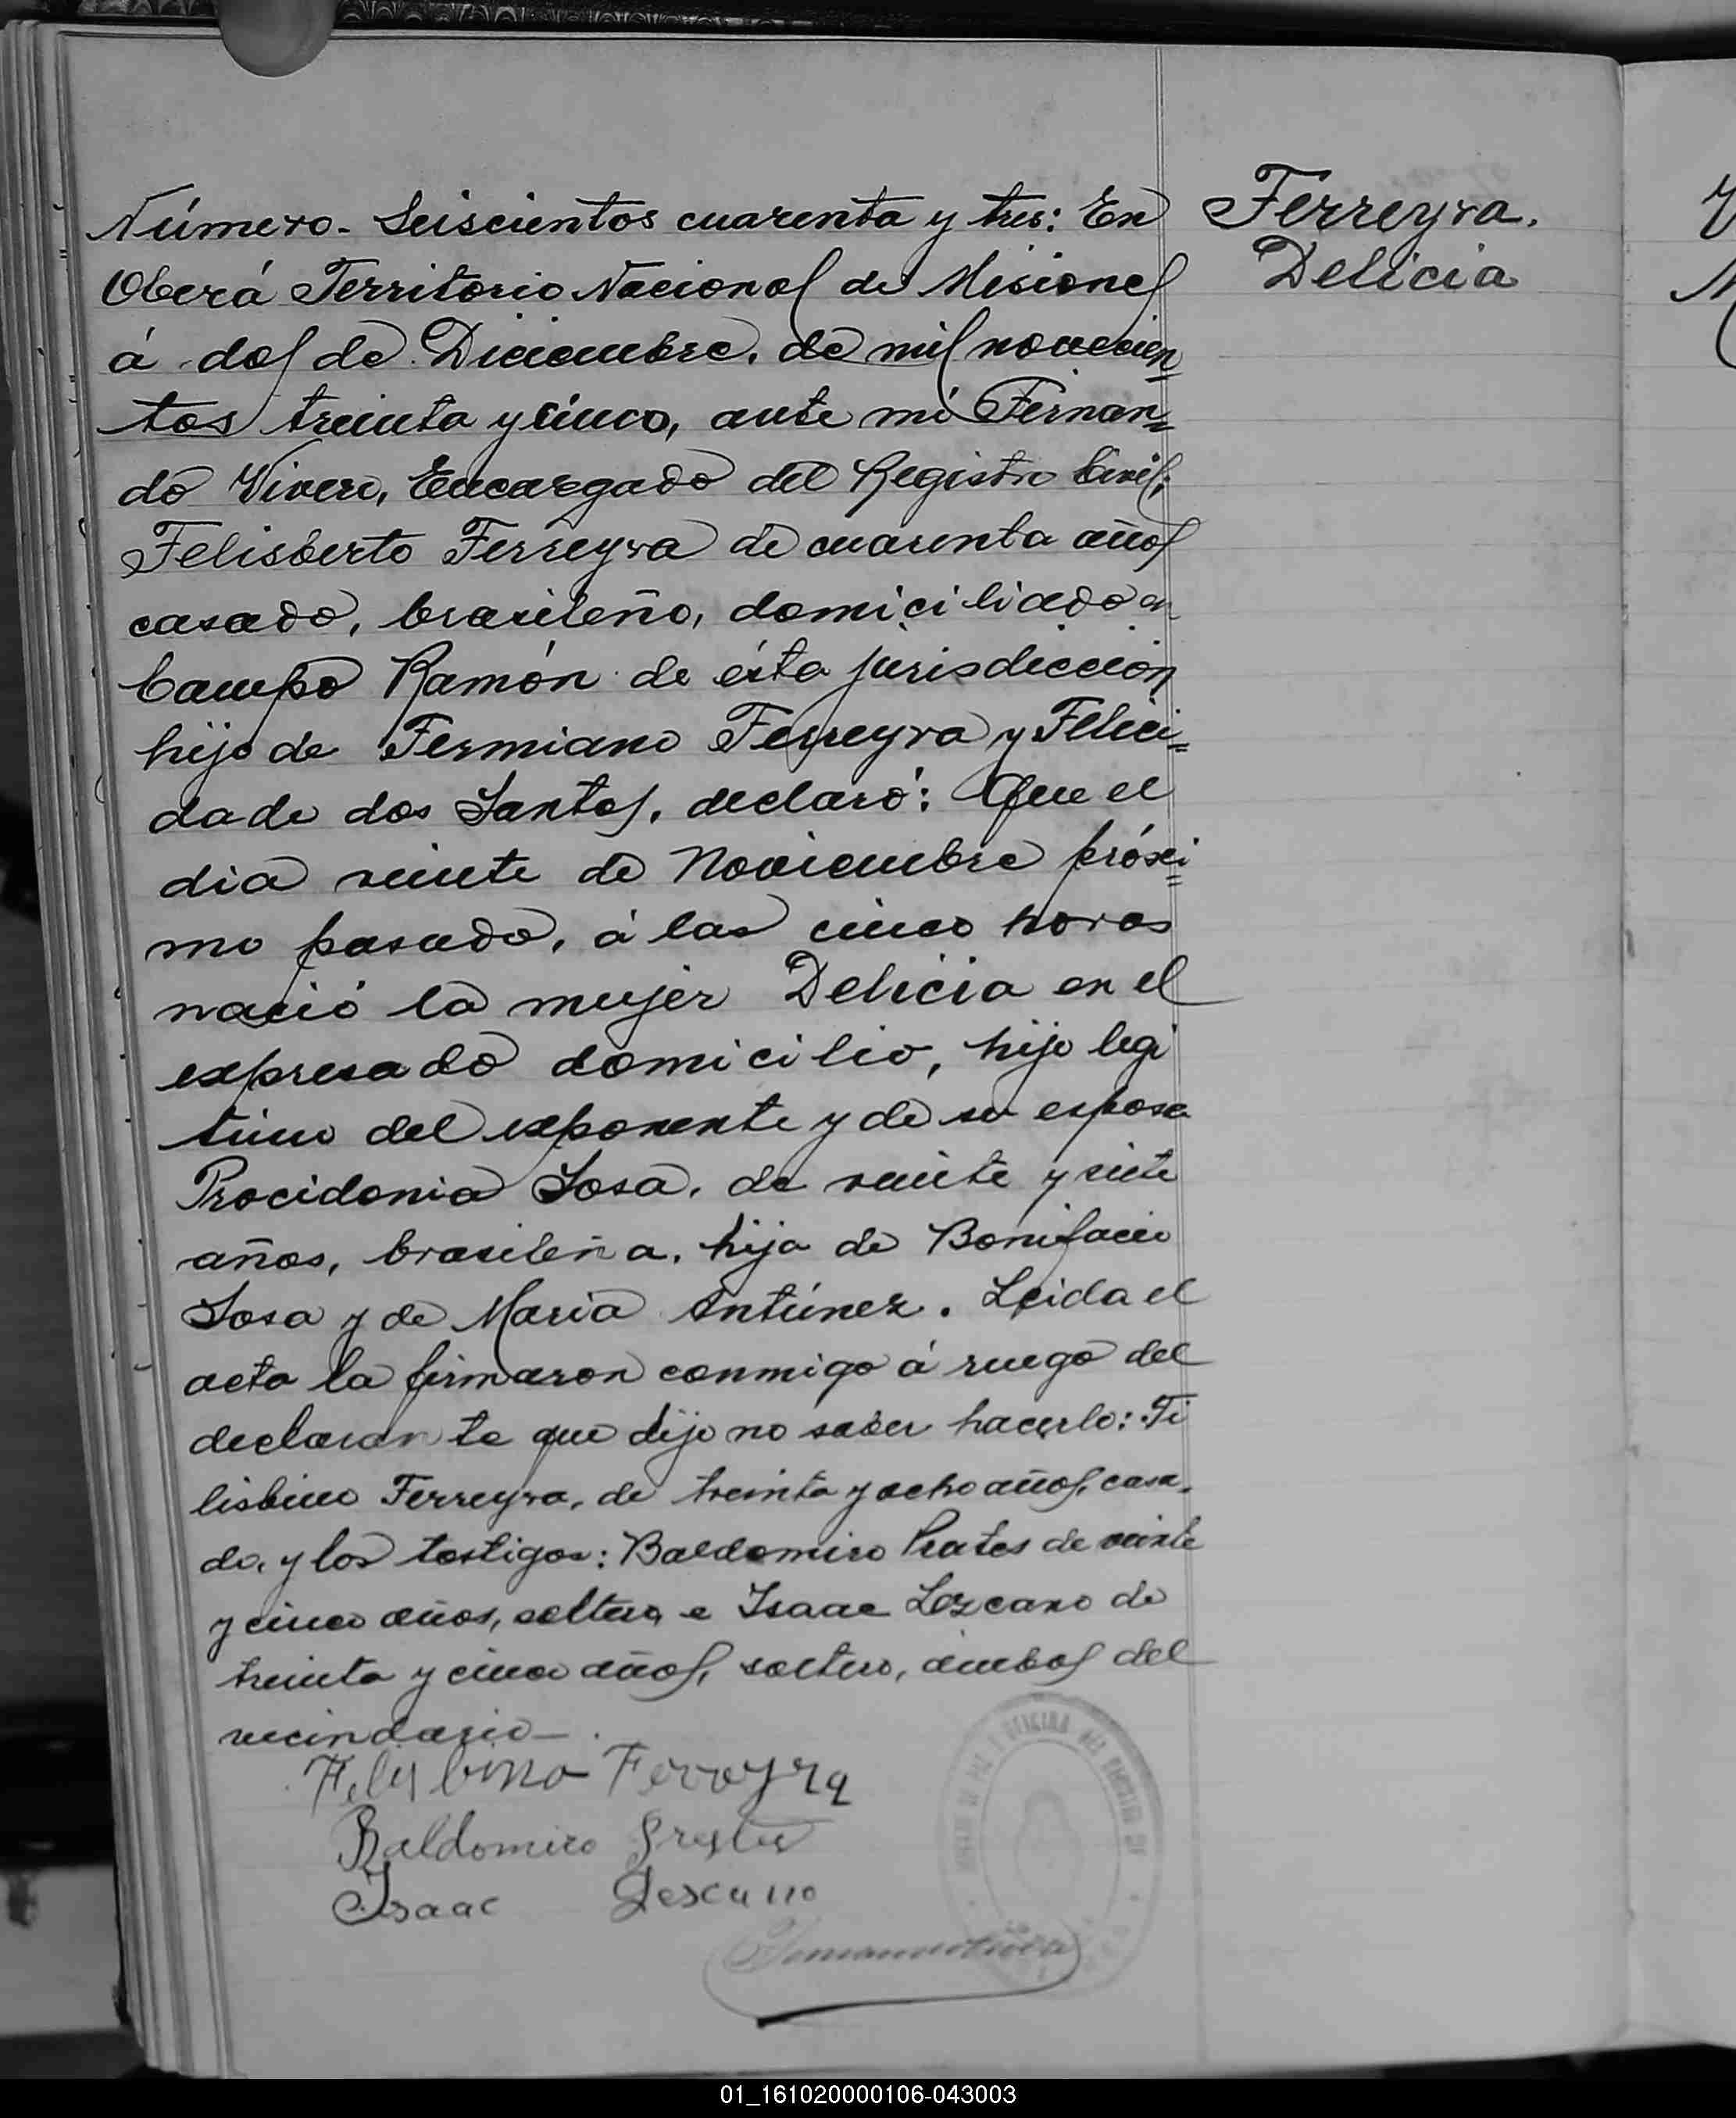 Número. Seiscientos cuarenta y tres: En
Oberá Territorio Nacional de Misiones
á dos de Diciembre, de mil novecien=
tos treinta y cinco, ante mí Fernan=
do Vivero, Encargado del Registro Civil;
Felisberto Ferreyra de cuarenta años
casado, brasileño, domiciliado en
Campo Ramón de ésta jurisdicción
hijo de Fermiano Ferreyra y Felici=
dade dos Santos, declaró: Que el
dia veinte de Noviembre próxi=
mo pasado, á las cinco horas
nació la mujer Delicia en el
expresado domicilio, hijo legi
timo del exponente y de su esposa
Procidonia Sosa, de veinte y siete
años, brasileña, hija de Bonifacio
Sosa y de María Antúnez. Leida el
acta la firmaron conmigo á ruego del
declarante que dijo no saber hacerlo: Fe
lisbino Ferreyra, de treinta y ocho años, casa-
do, y los testigos: Baldomiro Prates de veinte
y cinco años, soltero e Isaac Lezcano de
treinta y cinco años, soltero, ambos del
vecindario—.
Felysbino Ferreyra
Baldomiro
Isaac Lescano
Ferreyra.
Delicia
01_161020000106-043003